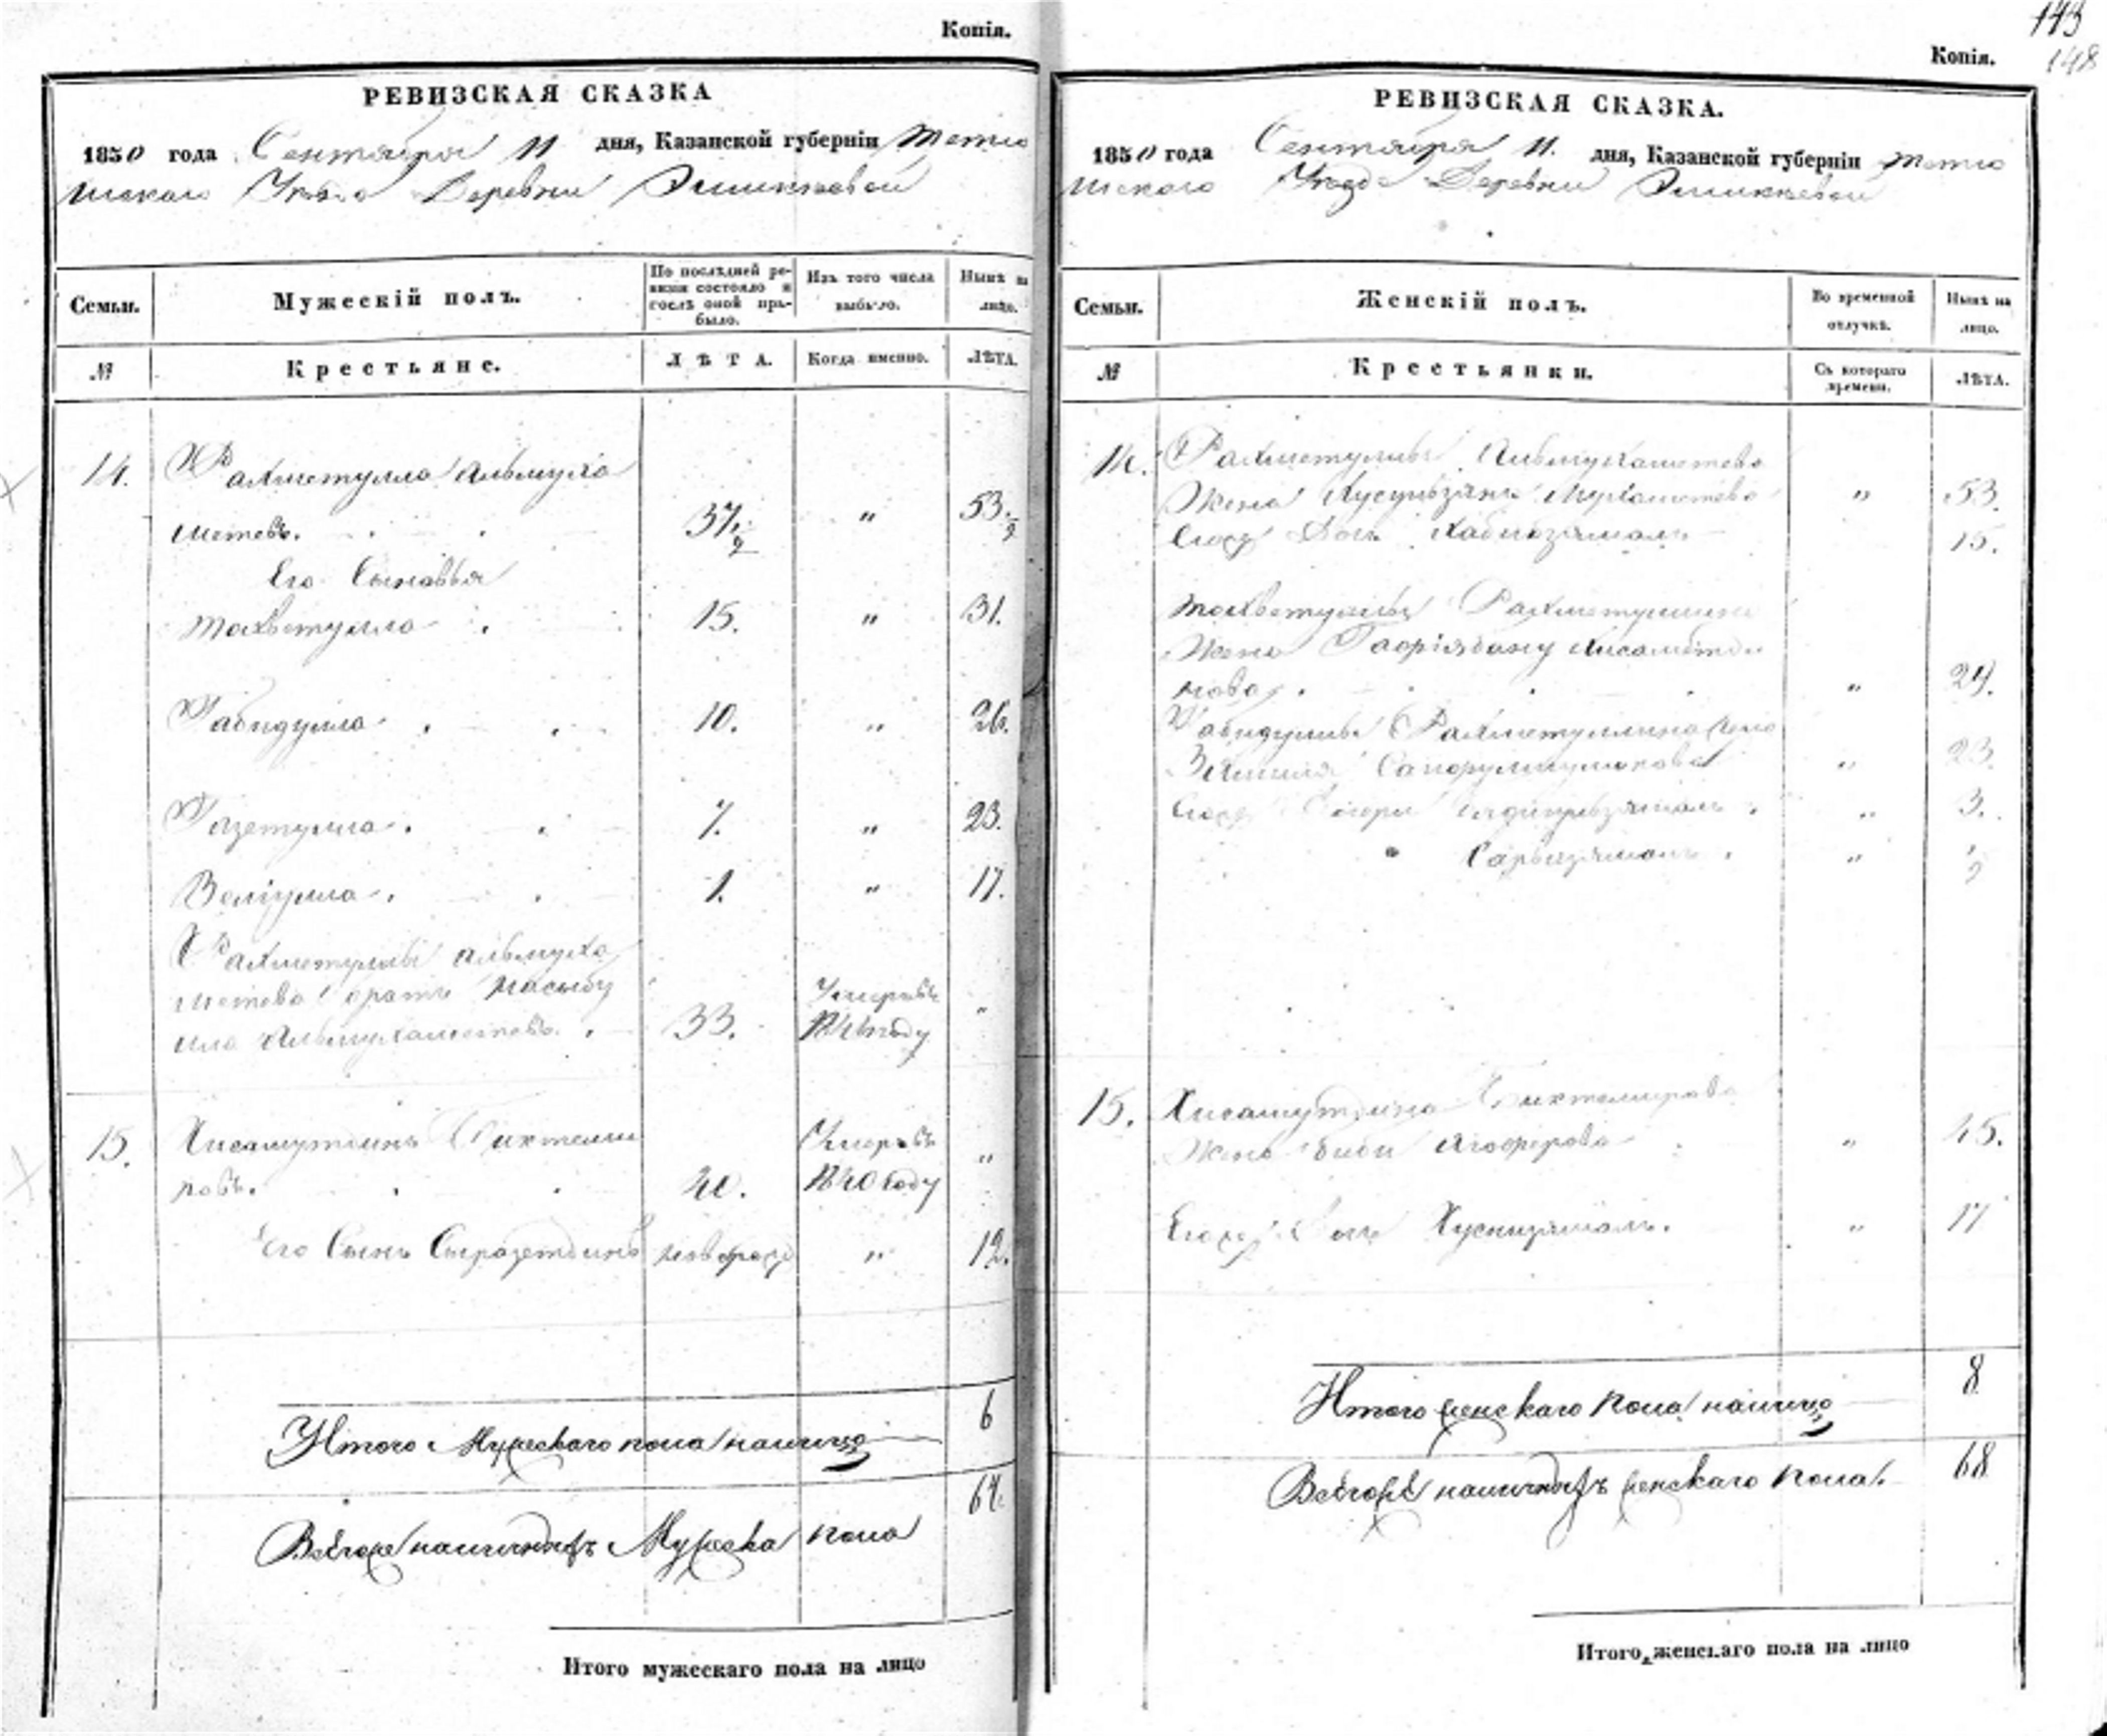 Копія.
РЕВИЗСКАЯ СКАЗКА
1850 года Сентября 11 дня, Казанской губерніи Тетю
шскаго Уезда Деревни
Семьи. Мужескій полъ. По послѣдней ре- визіи состояло и послѣ оной при- было. Изъ того числа выбыло. Нынѣ на лицо.
№ Крестьяне. ЛѢТА. Когда именно. ЛѢТА.
14. Рахметулла Альмуха
метевъ. 37 1/2 " 53 1/2
Его Сыновья
Тохветулла 15. " 31.
Габидулла 10. " 26.
Газетулла. 7. " 23.
Велиулла. 1. " 17.
Рахметуллы Альмуха
метева братъ
Альмухаметевъ. 33. Умеръ въ 1846 году "
15. Хисамутдинъ Биктеми
ровъ. 40. Умеръ въ 1840 году "
Его Сынъ Сыразетдинъ новорожд " 12.
Итого Мужескаго пола налицо 6
Всего же наличныхъ Мужеска пола 64.
Итого мужескаго пола на лицо
143
148
Копія.
РЕВИЗСКАЯ СКАЗКА.
1850 года Сентября 11. дня, Казанской губерніи Тетю
шскаго Уезда Деревни
Семьи. Женскій полъ. Во временной отлучкѣ. Нынѣ на лицо.
№ Крестьянки. Съ котораго времени. ЛѢТА.
14. Рахметуллы Альмухаметева
Жена Мухаметева " 53.
Ево дочь Хабибзямалъ 15.
Тохветуллы Рахметуллина
Жена
нова. " 24.
Габидуллы Рахметуллина жена
" 23.
Его дочери " 3.
" "
15. Хисамутдина Биктемирова
Жена Биби " 45.
Его дочь Хуснизямалъ. " 17
Итого женскаго пола налицо 8
Всего же наличныхъ женскаго пола. 68
Итого женскаго пола на лицо